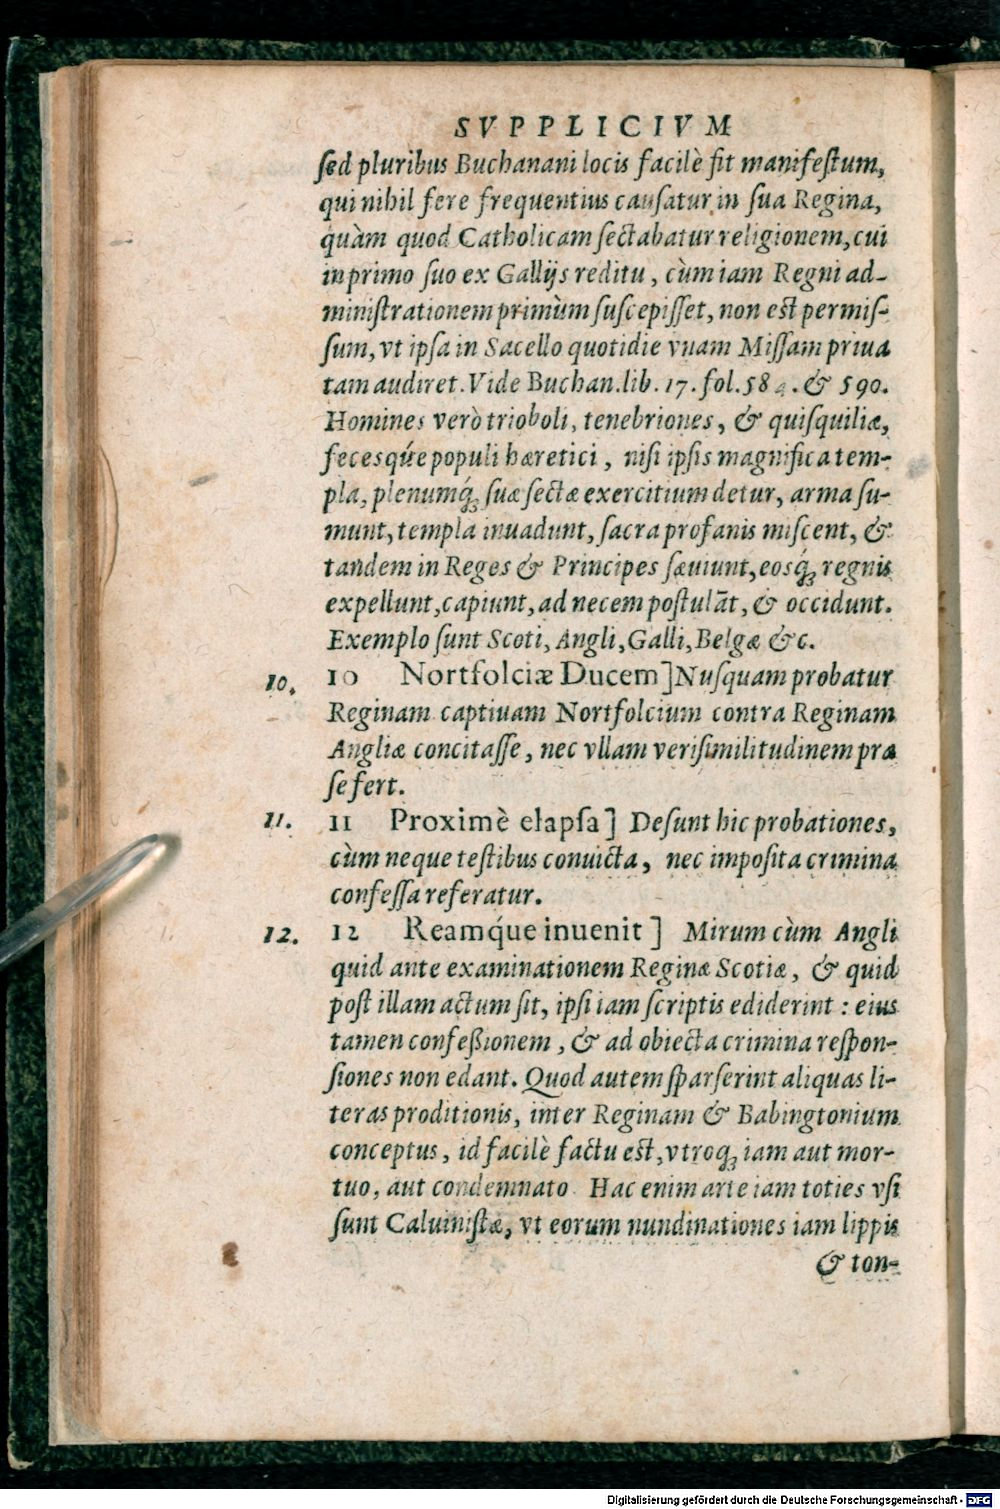 SVPPLICIVM
sed pluribus Buchanani locis facilè fit manifestum,
qui nihil fere frequentius causatur in sua Regina,
quàm quod Catholicam sectabatur religionem, cui
in primo suo ex Gallijs reditu, cùm iam Regni ad-
ministrationem primùm suscepisset, non est permis-
sum, vt ipsa in Sacello quotidie vnam Missam priua
tam audiret. Vide Buchan. lib. 17. fol. 584. & 590.
Homines verò trioboli, tenebriones, & quisquiliæ,
fecesq́ue populi hæretici, nisi ipsis magnifica tem-
pla, plenumq́; suæ sectæ exercitium detur, arma su-
munt, templa inuadunt, sacra profanis miscent, &
tandem in Reges & Principes sæuiunt, eosq́; regnis
expellunt, capiunt, ad necem postulãt, & occidunt.
Exemplo sunt Scoti, Angli, Galli, Belgæ &c.
10. 10 Nortfolciæ Ducem] Nusquam probatur
Reginam captiuam Nortfolcium contra Reginam
Angliæ concitasse, nec vllam verisimilitudinem præ
se fert.
11. 11 Proximè elapsa] Desunt hic probationes,
cùm neque testibus conuicta, nec imposita crimina
confessa referatur.
12. 12 Reamq́ue inuenit] Mirum cùm Angli
quid ante examinationem Reginæ Scotiæ, & quid
post illam actum sit, ipsi iam scriptis ediderint: eius
tamen confeßionem, & ad obiecta crimina respon-
siones non edant. Quod autem sparserint aliquas li-
teras proditionis, inter Reginam & Babingtonium
conceptus, id facilè factu est, vtroq; iam aut mor-
tuo, aut condemnato. Hac enim arte iam toties vsi
sunt Caluinistæ, vt eorum nundinationes iam lippis
& ton-
Digitalisierung gefördert durch die Deutsche Forschungsgemeinschaft - DFG